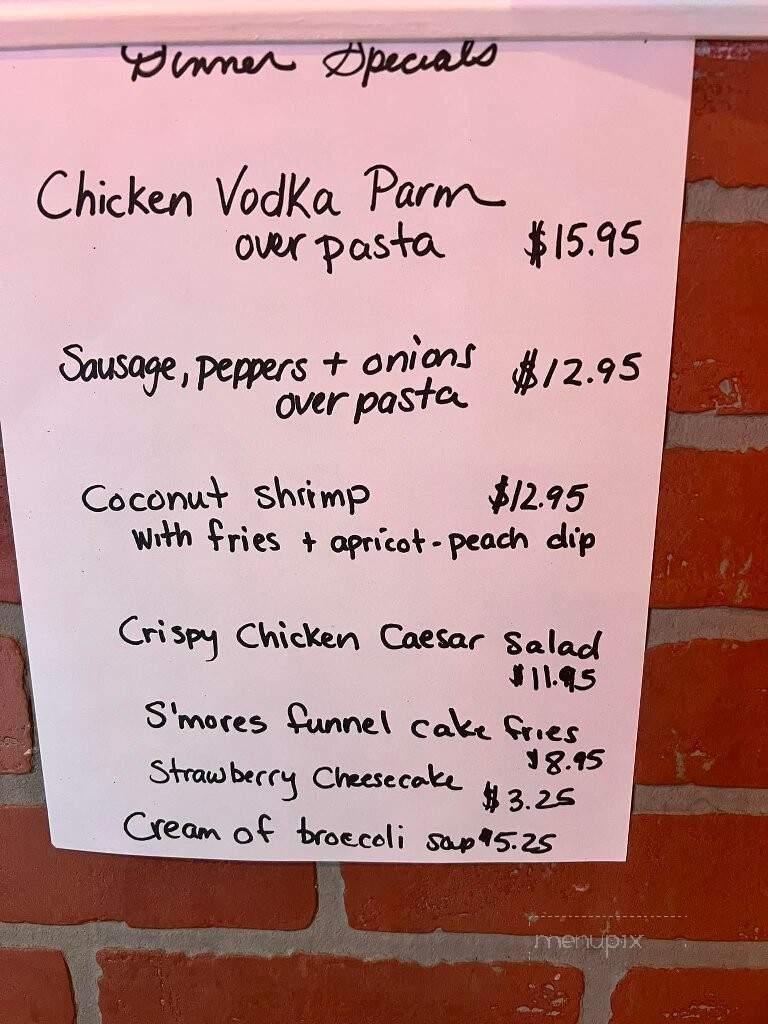 Dinner Specials
Chicken Vodka Parm
over pasta $15.95
Sausage, peppers + onions $12.95
over pasta
Coconut shrimp $12.95
with fries + apricot-peach dip
Crispy Chicken Caesar Salad
$11.95
S'mores funnel cake fries
$8.95
Strawberry Cheesecake
$3.25
Cream of broccoli soup $5.25
menupix